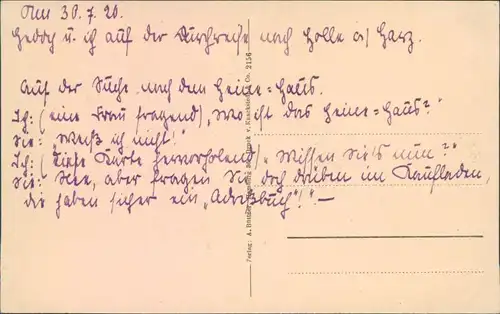 Am 30.7.20.
u. ich auf der Durchreise nach Holle a/ Harz.
Auf der Suche nach dem Heine-Haus.
Ich: (eine Frau fragend) „Wo ist das Heine-Haus?"
Sie: „Weiß ich nicht!"
Ich: (diese Karte hervorholend) „Wissen Sie's nun?"
Sie: Nee, aber fragen Sie doch drüben im Kaufladen,
die haben sicher ein „Adreßbuch"!"—
Verlag: A. Druck v. Knackstedt & Co. 2156